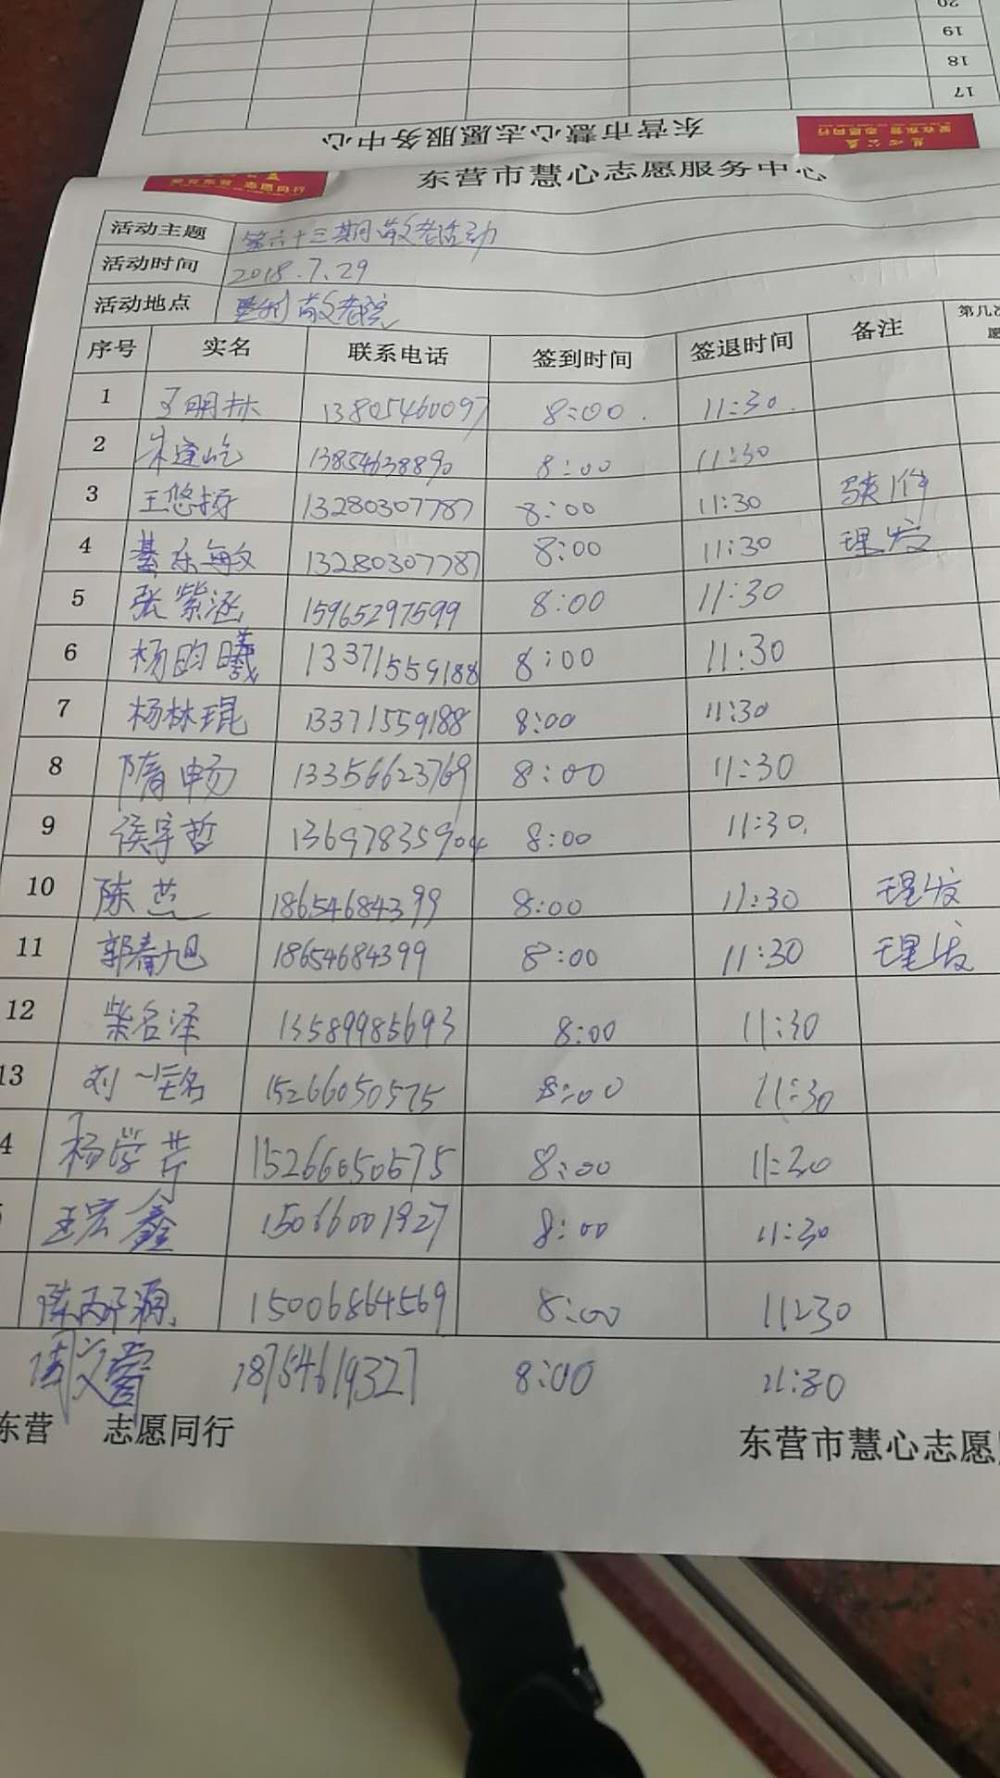 20
19
18
17
东营市慧心志愿服务中心
东营市慧心志愿服务中心
活动主题 第六十三期敬老活动
活动时间 2018.7.29
活动地点 垦利敬老院
序号 实名 联系电话 签到时间 签退时间 备注 第几次
1 丁明林 13805460097 8:00. 11:30.
2 朱道屹 13854638890 8:00 11:30
3 王悠扬 13280307787 8:00 11:30 马夹1件
4 綦乐敏 13280307787 8:00 11:30 理发
5 张紫涵 15965297599 8:00 11:30
6 杨昀曦 13371559188 8:00 11:30
7 杨林琨 13371559188 8:00 11:30
8 隋畅 13356623769 8:00 11:30
9 侯宇哲 13697835904 8:00 11:30.
10 陈燕 18654684399 8:00 11:30 理发
11 郭春旭 18654684399 8:00 11:30 理发
12 柴名泽 13589985693 8:00 11:30
13 刘一 15266050575 8:00 11:30
4 杨学芹 15266050575 8:00 11:30
王宏鑫 15066001927 8:00 11:30
陈 源 15006864569 8:00 11:30
周文 18754619327 8:00 11:30
东营 志愿同行 东营市慧心志愿